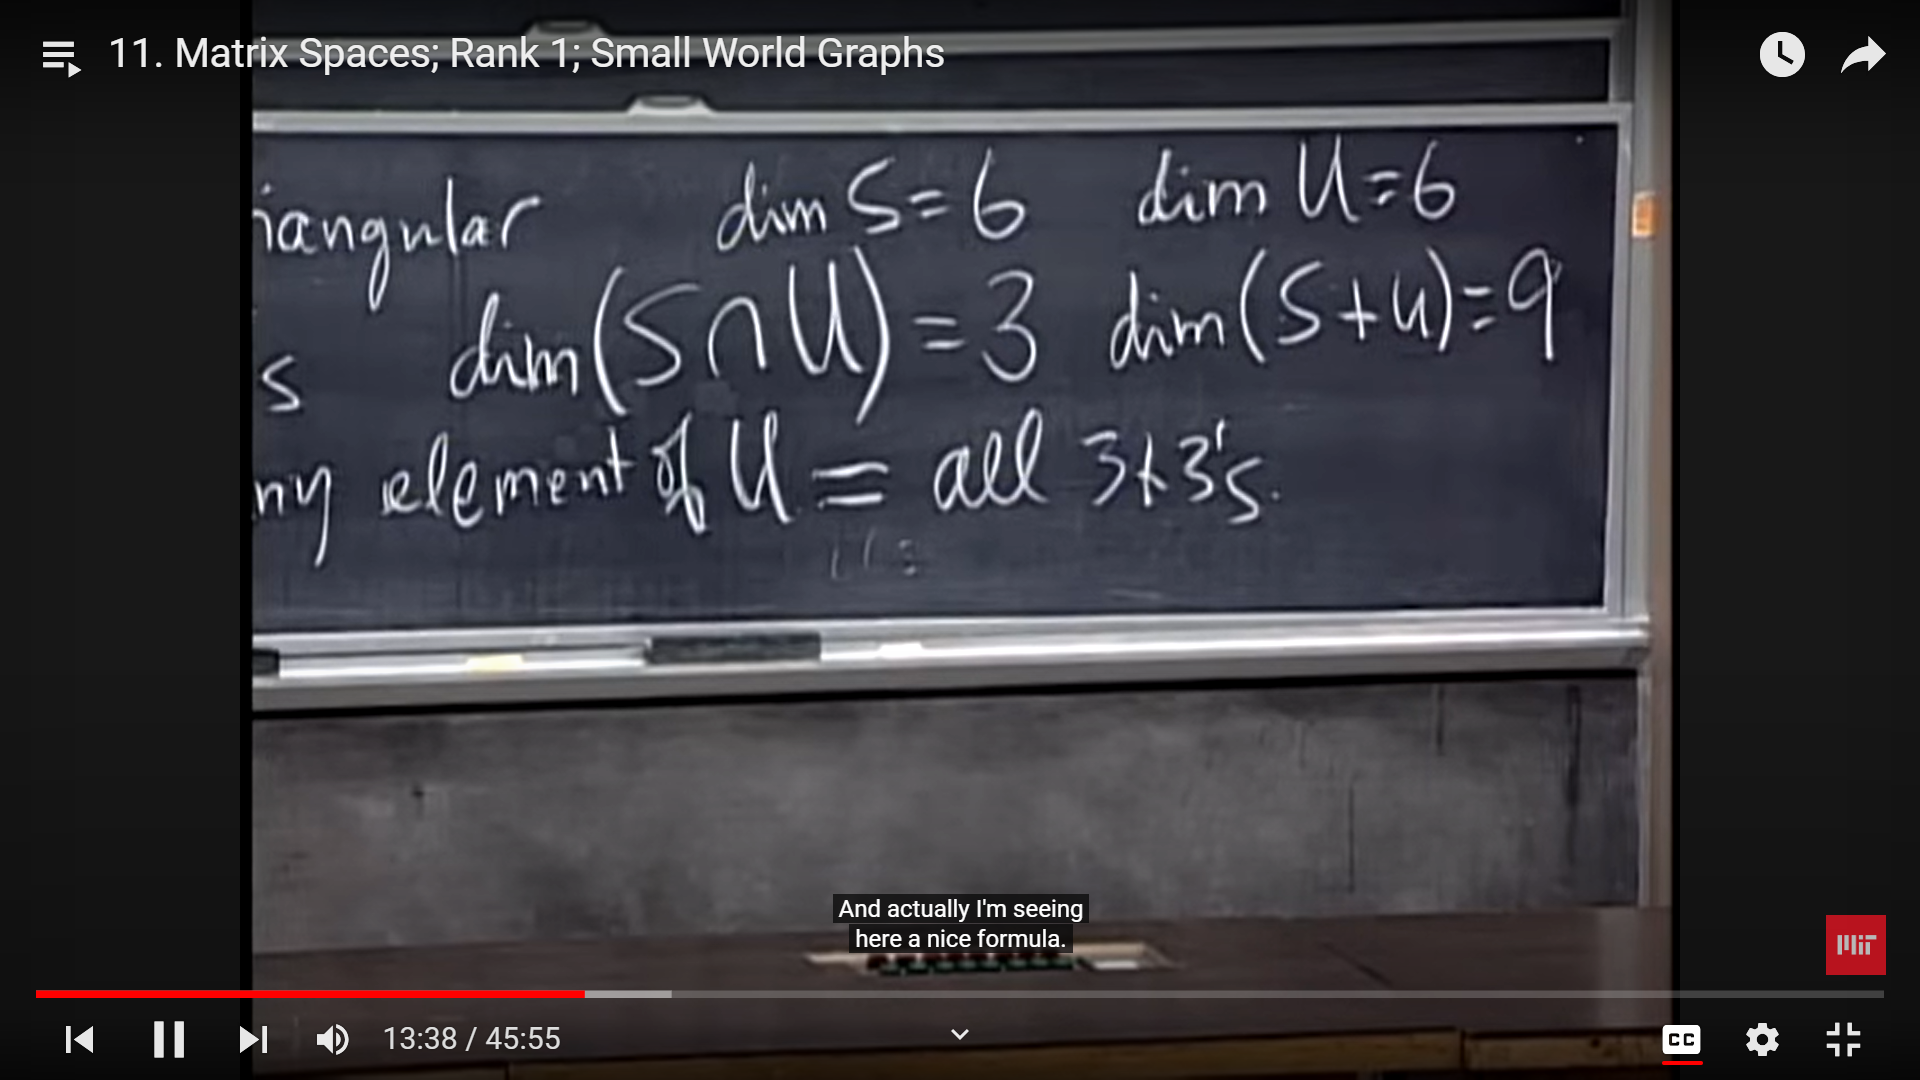 11. Matrix Spaces; Rank 1; Small World Graphs
iangular dim S = 6 dim U = 6
s dim(S ∩ U) = 3 dim(S + U) = 9
ny element of U = all 3x3's.
And actually I'm seeing
here a nice formula.
MIT
13:38 / 45:55
CC